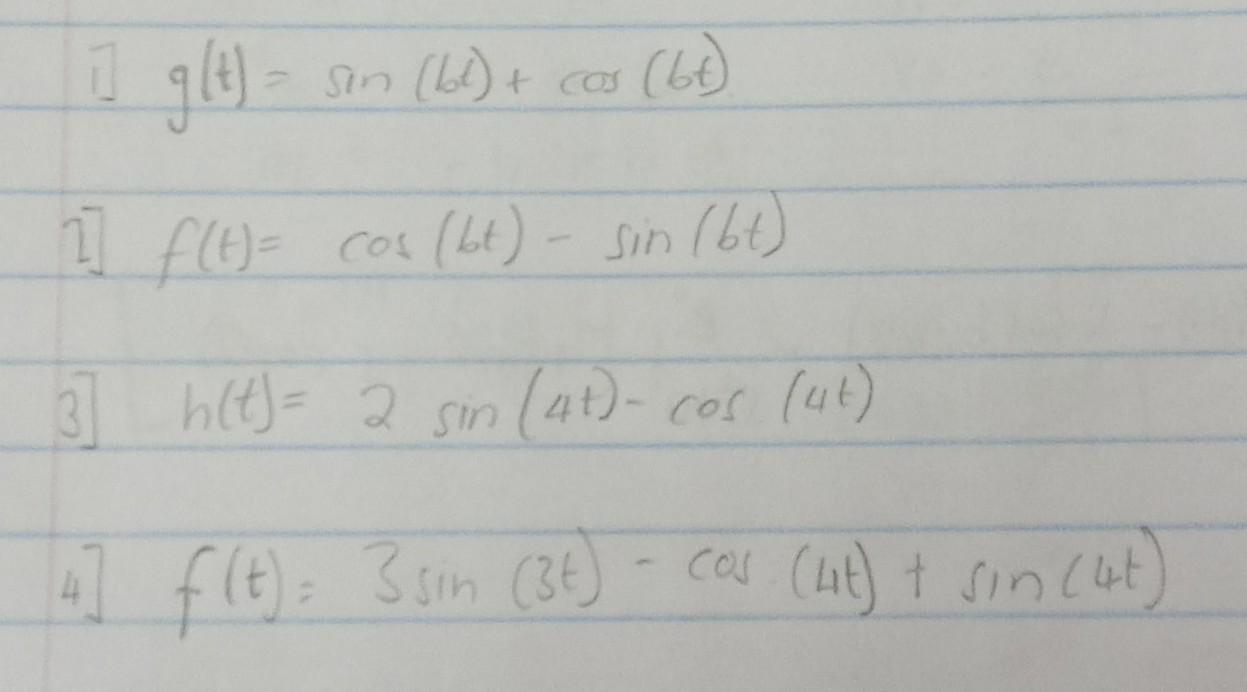 1] g(t) = sin (6t) + cos (6t)
2] f(t) = cos (6t) - sin (6t)
3] h(t) = 2 sin (4t) - cos (4t)
4] f(t) = 3 sin (3t) - cos (4t) + sin (4t)